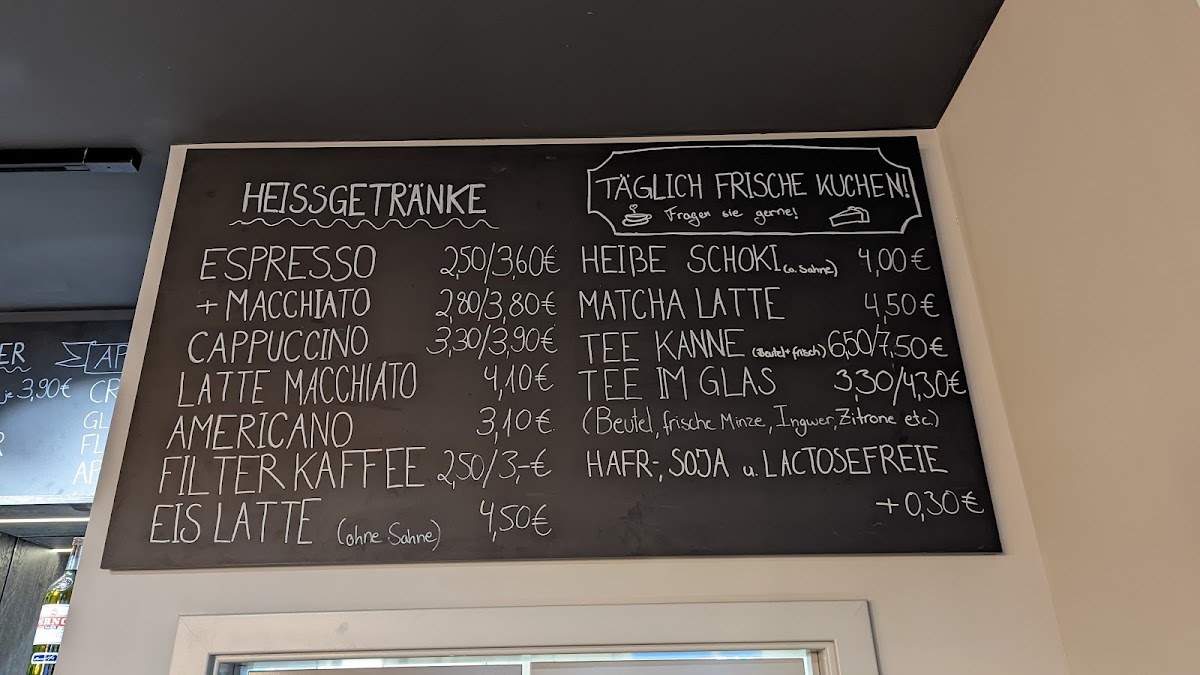 HEISSGETRÄNKE
ESPRESSO 2,50/3,60€
+ MACCHIATO 2,80/3,80€
CAPPUCCINO 3,30/3,90€
LATTE MACCHIATO 4,10€
AMERICANO 3,10€
FILTER KAFFEE 2,50/3,-€
EIS LATTE (ohne Sahne) 4,50€
TÄGLICH FRISCHE KUCHEN!
Fragen sie gerne!
HEIßE SCHOKI (o. Sahne) 4,00€
MATCHA LATTE 4,50€
TEE KANNE (Beutel+frisch) 6,50/7,50€
TEE IM GLAS 3,30/4,30€
(Beutel, frische Minze, Ingwer, Zitrone etc.)
HAFR-, SOJA u. LACTOSEFREIE
+0,30€
je 3,90€